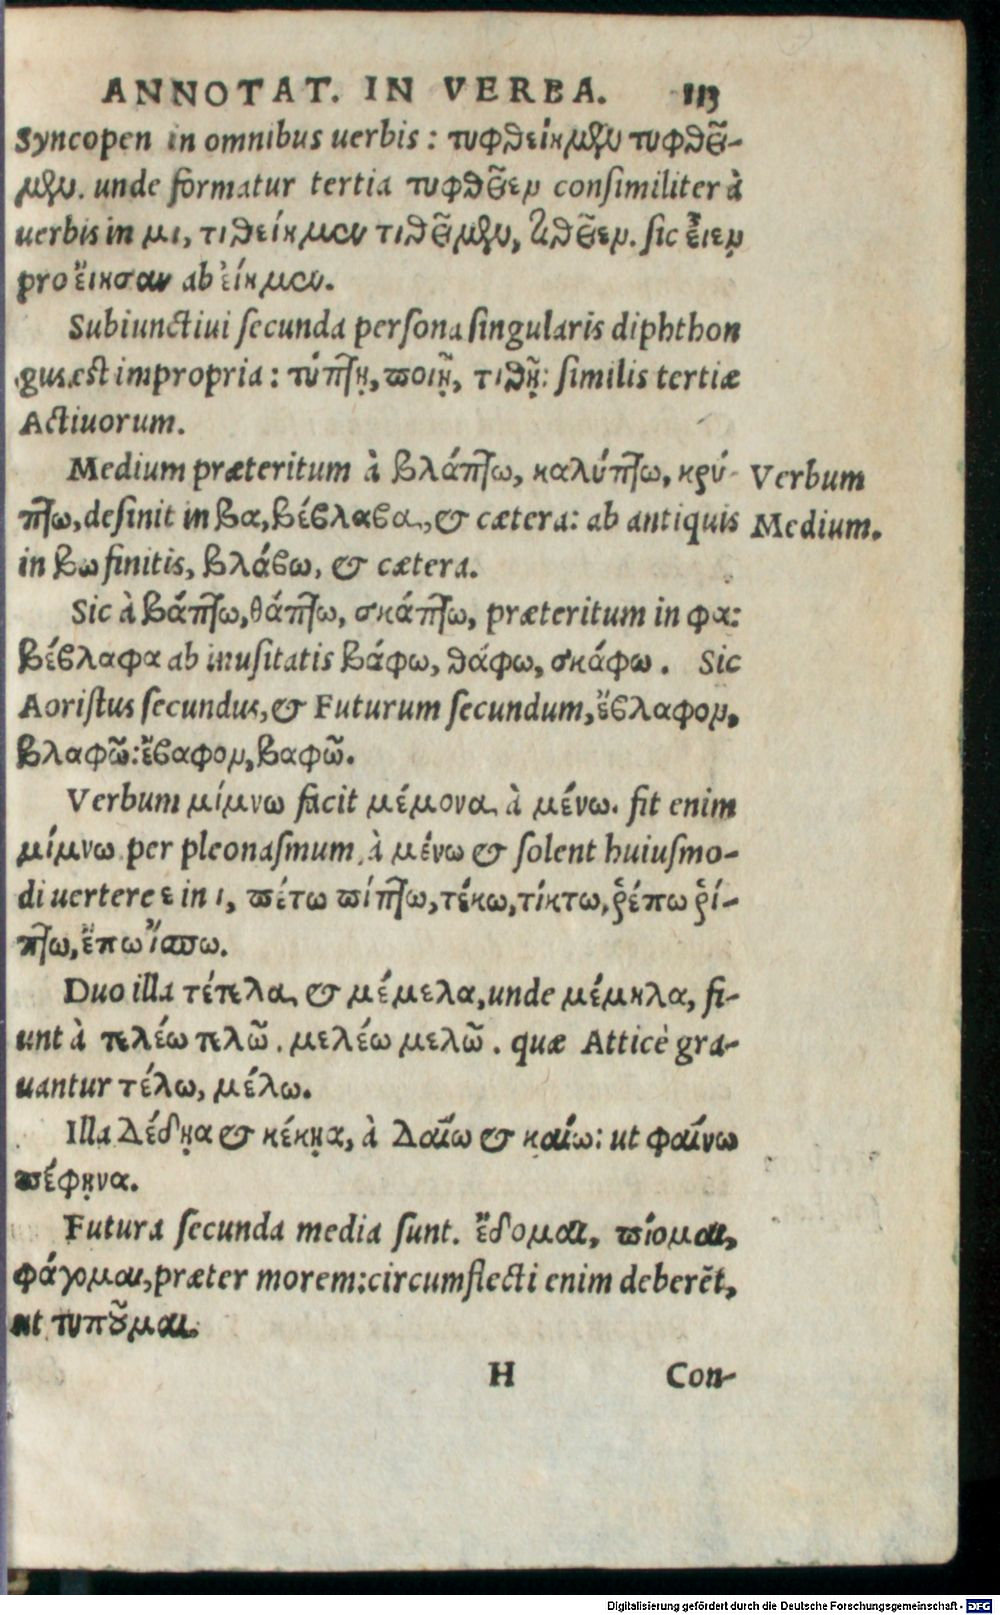 ANNOTAT. IN VERBA. 113
Syncopen in omnibus uerbis: τυφθείημϟυ τυφθεῖ-
μϟυ. unde formatur tertia τυφθεῖεν consimiliter à
uerbis in μι, τιθείημεν τιθεῖμϟυ, τιθεῖεν. sic εἶεν
pro εἴησαν ab εἴημεν.
Subiunctiui secunda persona singularis diphthon
gus est impropria: τύπτῃ, ποιῇ, τιθῇ: similis tertiæ
Actiuorum.
Medium præteritum à βλάπτω, καλύπτω, κρύ-
πτω, desinit in βα, βέβλαβα, & cætera: ab antiquis
in βω finitis, βλάβω, & cætera.
Verbum
Medium.
Sic à βάπτω, θάπτω, σκάπτω, præteritum in φα:
βέβλαφα ab inusitatis βάφω, θάφω, σκάφω. Sic
Aoristus secundus, & Futurum secundum, ἔβλαφον,
βλαφῶ: ἔβαφον, βαφῶ.
Verbum μίμνω facit μέμονα à μένω. fit enim
μίμνω per pleonasmum à μένω & solent huiusmo-
di uertere ε in ι, πέτω πίπτω, τέκω, τίκτω, ῥέπω ῥί-
πτω, ἔπω ἴαπω.
Duo illa τέτελα & μέμελα, unde μέμηλα, fi-
unt à τελέω τελῶ. μελέω μελῶ. quæ Atticè gra-
uantur τέλω, μέλω.
Illa Δέδῃα & κέκῃα, à Δαίω & καίω: ut φαίνω
πέφῃνα.
Futura secunda media sunt. ἔδομαι, πίομαι,
φάγομαι, præter morem: circumflecti enim deberẽt,
ut τυποῦμαι.
H Con-
Digitalisierung gefördert durch die Deutsche Forschungsgemeinschaft - DFG